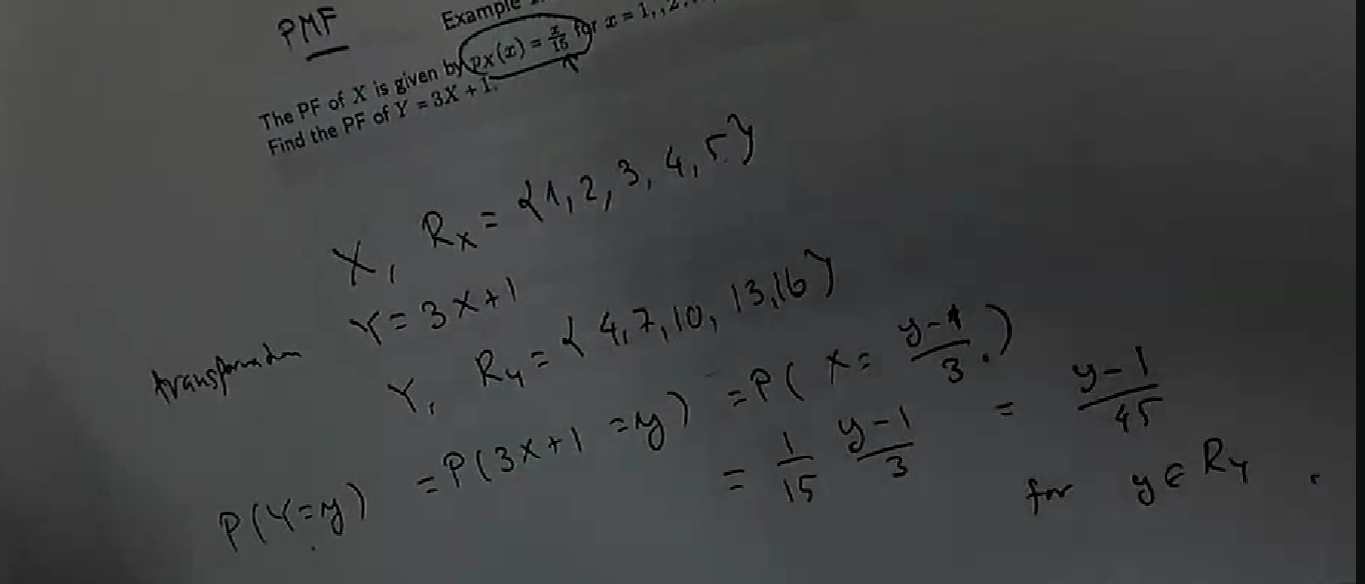 PMF
Example
The PF of X is given by pX(x) = x/15 for x = 1, , 2
Find the PF of Y = 3X + 1.
X, RX = {1, 2, 3, 4, 5}
Y = 3X+1
Y, RY = { 4, 7, 10, 13, 16 }
P(Y=y) = P(3X+1 = y) = P( X = y-1/3 . )
= 1/15 y-1/3 = y-1/45
for y ∈ RY .